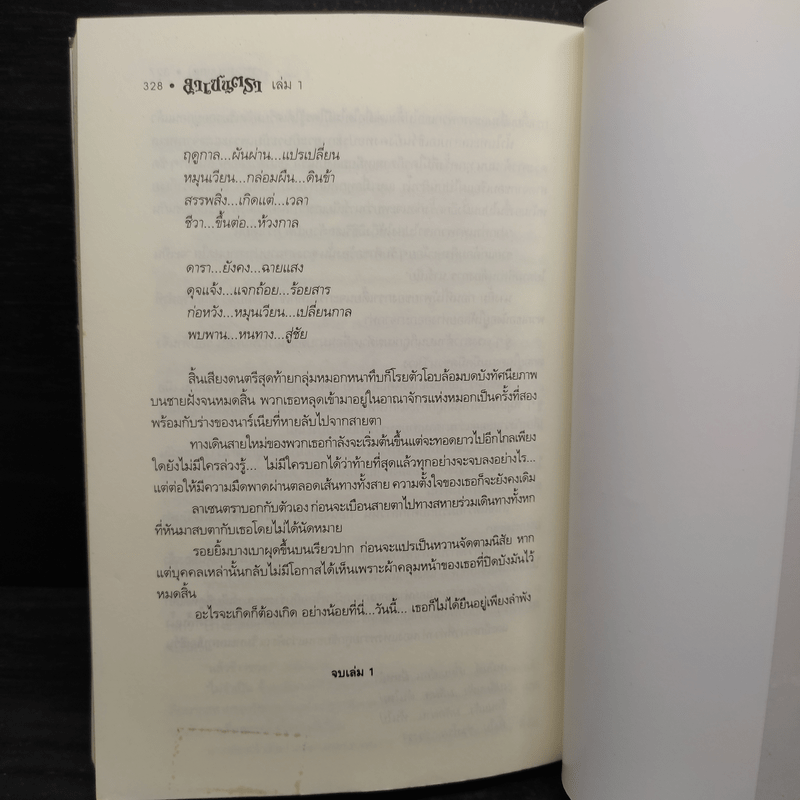 328 • ลาเซนตรา เล่ม 1
ฤดูกาล...ผันผ่าน...แปรเปลี่ยน
หมุนเวียน...กล่อมผืน...ดินช้า
สรรพสิ่ง...เกิดแต่...เวลา
ชีวา...ขึ้นต่อ...ห้วงกาล
ดารา...ยังคง...ฉายแสง
ดุจแจ้ง...แจกถ้อย...ร้อยสาร
ก่อหวัง...หมุนเวียน...เปลี่ยนกาล
พบพาน...หนทาง...สู่ชัย
สิ้นเสียงดนตรีสุดท้ายกลุ่มหมอกหนาทึบก็โรยตัวโอบล้อมบดบังทัศนียภาพ
บนชายฝั่งจนหมดสิ้น พวกเธอหลุดเข้ามาอยู่ในอาณาจักรแห่งหมอกเป็นครั้งที่สอง
พร้อมกับร่างของนาร์เนียที่หายลับไปจากสายตา
ทางเดินสายใหม่ของพวกเธอกำลังจะเริ่มต้นขึ้นแต่จะทอดยาวไปอีกไกลเพียง
ใดยังไม่มีใครล่วงรู้... ไม่มีใครบอกได้ว่าท้ายที่สุดแล้วทุกอย่างจะจบลงอย่างไร...
แต่ต่อให้มีความมืดพาดผ่านตลอดเส้นทางทั้งสาย ความตั้งใจของเธอก็จะยังคงเดิม
ลาเซนตราบอกกับตัวเอง ก่อนจะเบือนสายตาไปทางสหายร่วมเดินทางทั้งหก
ที่หันมาสบตากับเธอโดยไม่ได้นัดหมาย
รอยยิ้มบางเบาผุดขึ้นบนเรียวปาก ก่อนจะแปรเป็นหวานจัดตามนิสัย หาก
แต่บุคคลเหล่านั้นกลับไม่มีโอกาสได้เห็นเพราะผ้าคลุมหน้าของเธอที่ปิดบังมันไว้
หมดสิ้น
อะไรจะเกิดก็ต้องเกิด อย่างน้อยที่นี่...วันนี้... เธอก็ไม่ได้ยืนอยู่เพียงลำพัง
จบเล่ม 1